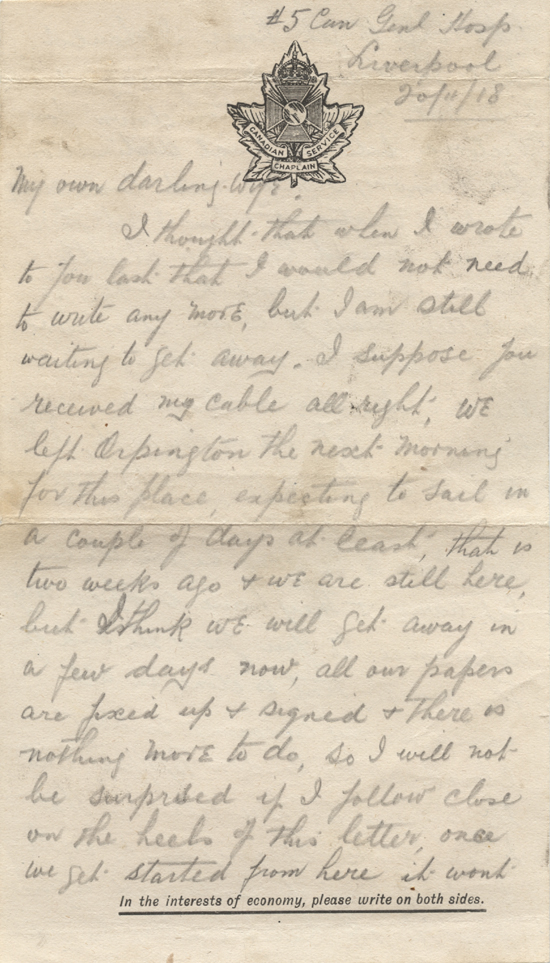 #5 Can Genl Hosp
Liverpool
20/11/18
CANADIAN CHAPLAIN SERVICE
My own darling wife.
I thought that when I wrote
to you last that I would not need
to write any more, but I am still
waiting to get away. I suppose you
received my cable all right, we
left Orpington the next morning
for this place, expecting to sail in
a couple of days at least, that is
two weeks ago + we are still here,
but I think we will get away in
a few days now, all our papers
are fixed up + signed + there is
nothing more to do, so I will not
be surprised if I follow close
on the heels of this letter, once
we get started from here it wont
In the interests of economy, please write on both sides.